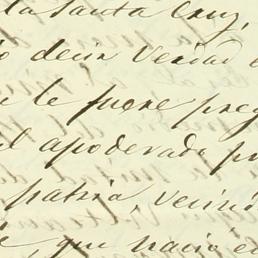 la Santa Cruz,
decir verdad
le fuere preg
apoderado pr
patria, vecino
que nació en